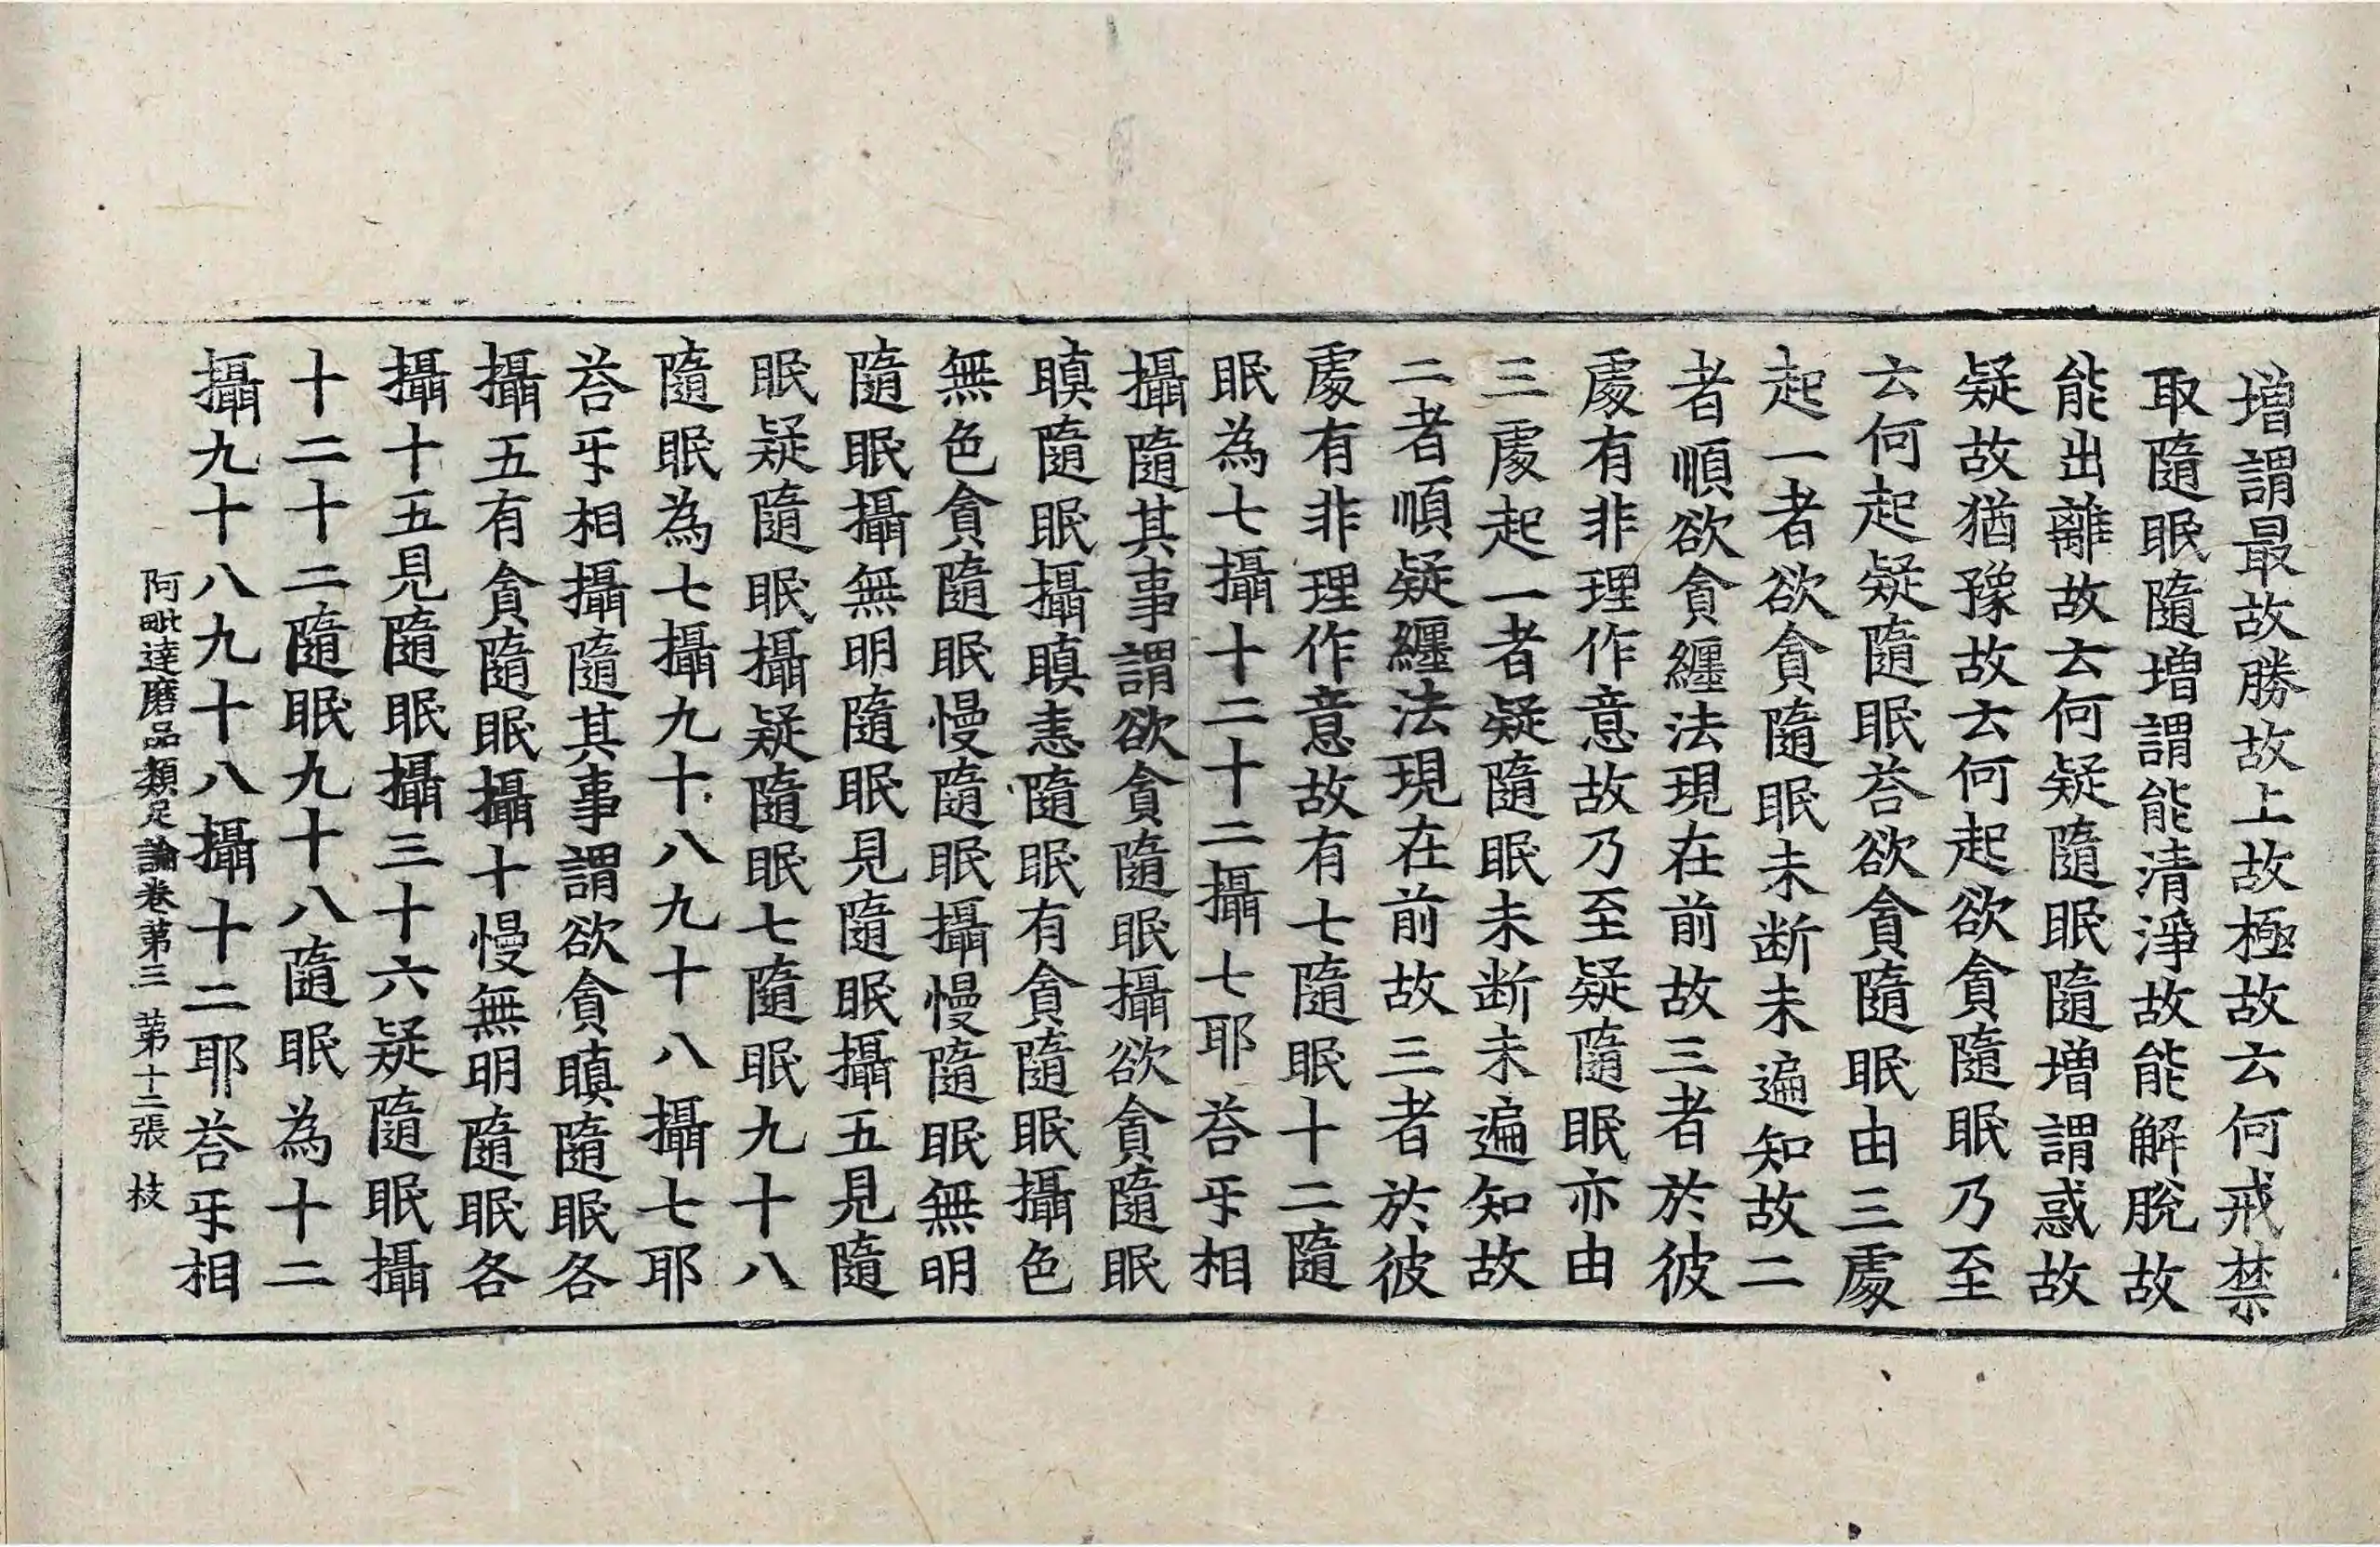 增謂最故勝故上故極故云何戒禁
取隨眠隨增謂能清淨故能解脫故
能出離故云何疑隨眠隨增謂惑故
疑故猶豫故云何起欲貪隨眠乃至
云何起疑隨眠荅欲貪隨眠由三處
起一者欲貪隨眠未断未遍知故二
者順欲貪纏法現在前故三者於彼
處有非理作意故乃至疑隨眠亦由
三處起一者疑隨眠未断未遍知故
二者順疑纏法現在前故三者於彼
處有非理作意故有七隨眠十二隨
眠為七攝十二十二攝七耶荅㸦相
攝隨其事謂欲貪隨眠攝欲貪隨眠
瞋隨眠攝瞋恚隨眠有貪隨眠攝色
無色貪隨眠慢隨眠攝慢隨眠無明
隨眠攝無明隨眠見隨眠攝五見隨
眠疑隨眠攝疑隨眠七隨眠九十八
隨眠為七攝九十八九十八攝七耶
荅㸦相攝隨其事謂欲貪瞋隨眠各
攝五有貪隨眠攝十慢無明隨眠各
攝十五見隨眠攝三十六疑隨眠攝
十二十二隨眠九十八隨眠為十二
攝九十八九十八攝十二耶荅㸦相
阿毗達磨品類足論卷第三 第十二張 枝